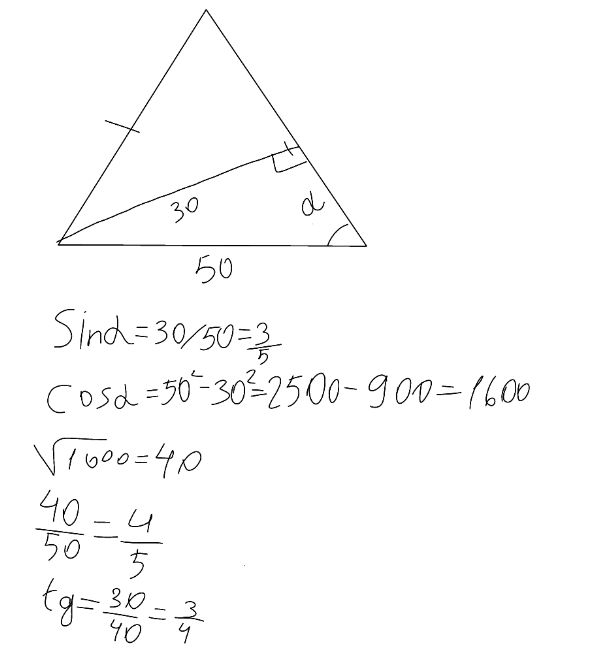 30
α
50
Sinα=30/50=3/5
Cosα=50²-30²=2500-900=1600
√1600=40
40/50=4/5
tg=30/40=3/4